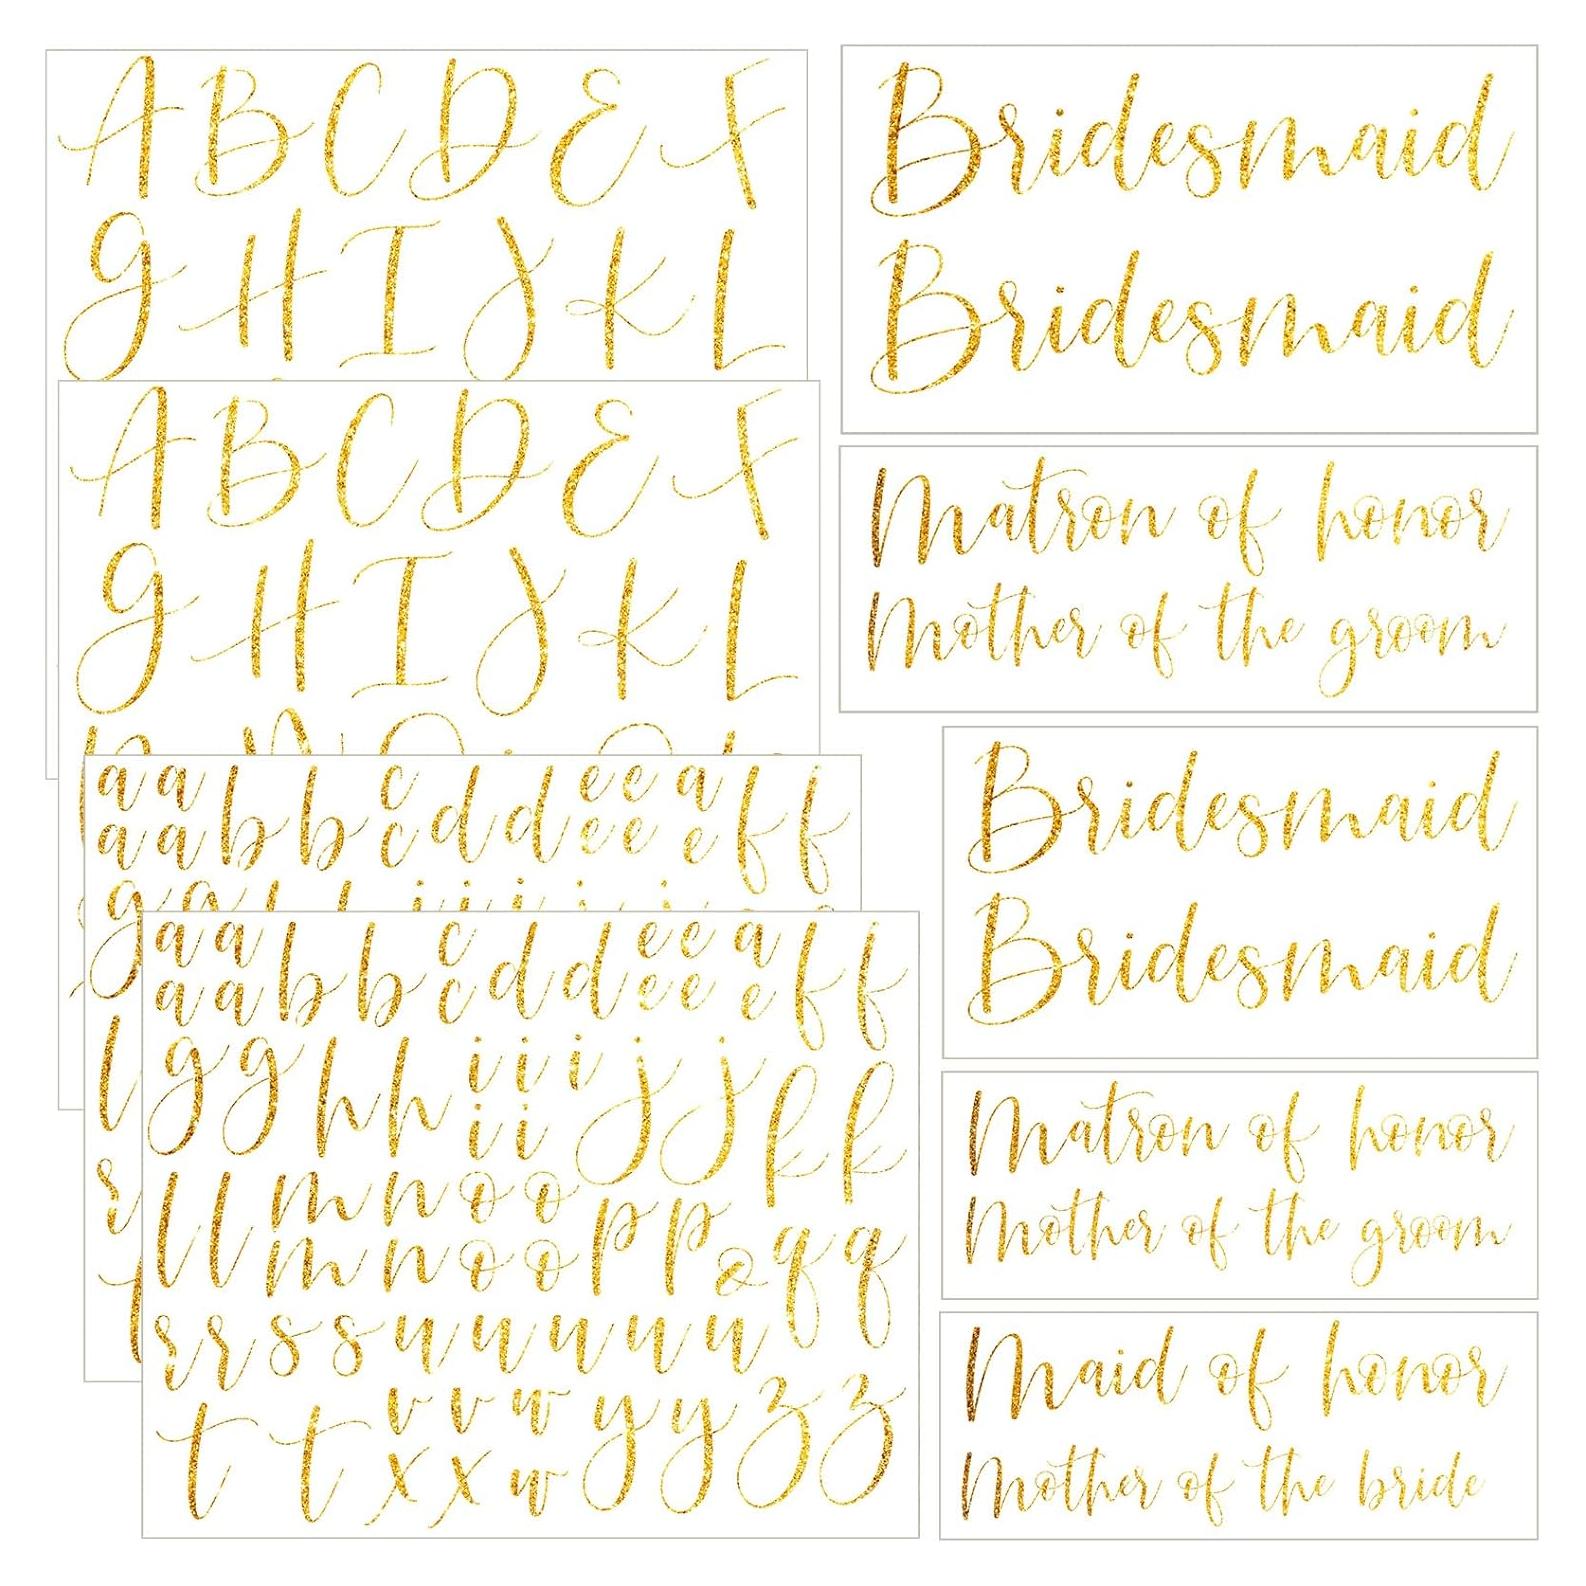 A B C D E F
g H I J K L
A B C D E F
g H I J K L
a a b b c d d e e a f f
a a c e e e
a a b b c d d e e a f f
a a c e e e
g g h h i i i j j k k
i i
l l m n o o p p q q
m n o o &
r r s s u u u u u
t t v v w y y z z
x x w
Bridesmaid
Bridesmaid
Matron of honor
Mother of the groom
Bridesmaid
Bridesmaid
Matron of honor
Mother of the groom
Maid of honor
Mother of the bride